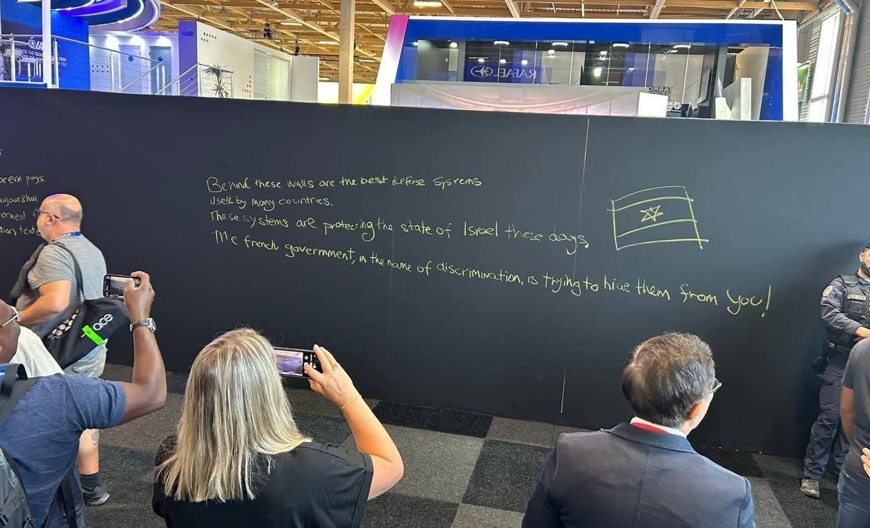 pays.
aujourd'hui
Behind these walls are the best defense systems
used by many countries.
These systems are protecting the state of Israel these days,
The french government, in the name of discrimination, is trying to hide them from you!
RAFAEL
ace